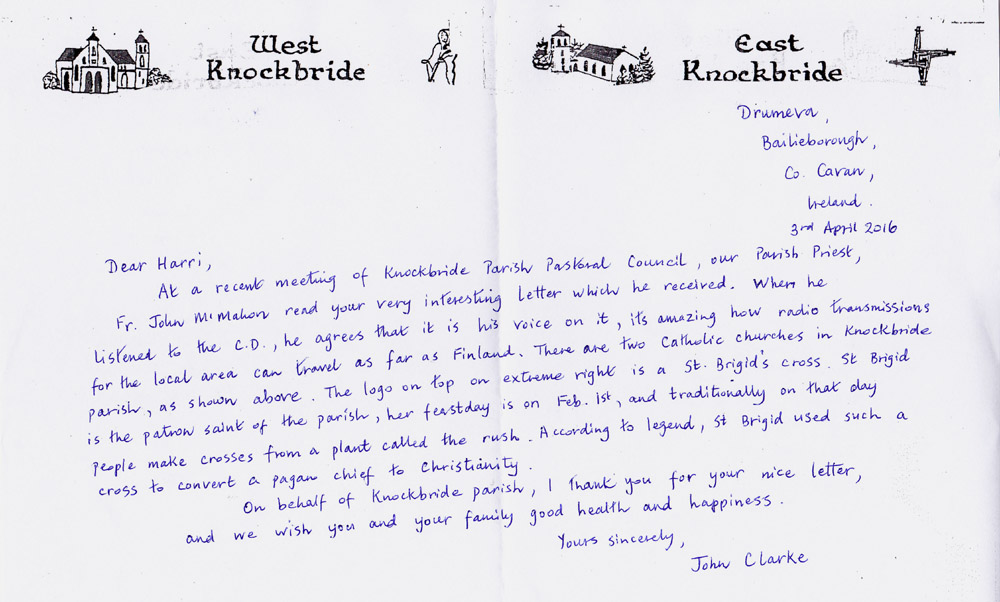 West
Knockbride
East
Knockbride
Drumeva,
Bailieborough,
Co. Cavan,
Ireland.
3rd April 2016
Dear Harri,
At a recent meeting of Knockbride Parish Pastoral Council, our Parish Priest,
Fr. John McMahon read your very interesting letter which he received. When he
listened to the C.D., he agrees that it is his voice on it, it's amazing how radio transmissions
for the local area can travel as far as Finland. There are two Catholic churches in Knockbride
parish, as shown above. The logo on top on extreme right is a St. Brigid's cross. St Brigid
is the patron saint of the parish, her feastday is on Feb. 1st, and traditionally on that day
people make crosses from a plant called the rush. According to legend, St Brigid used such a
cross to convert a pagan chief to Christianity.
On behalf of Knockbride parish, I thank you for your nice letter,
and we wish you and your family good health and happiness.
Yours sincerely,
John Clarke